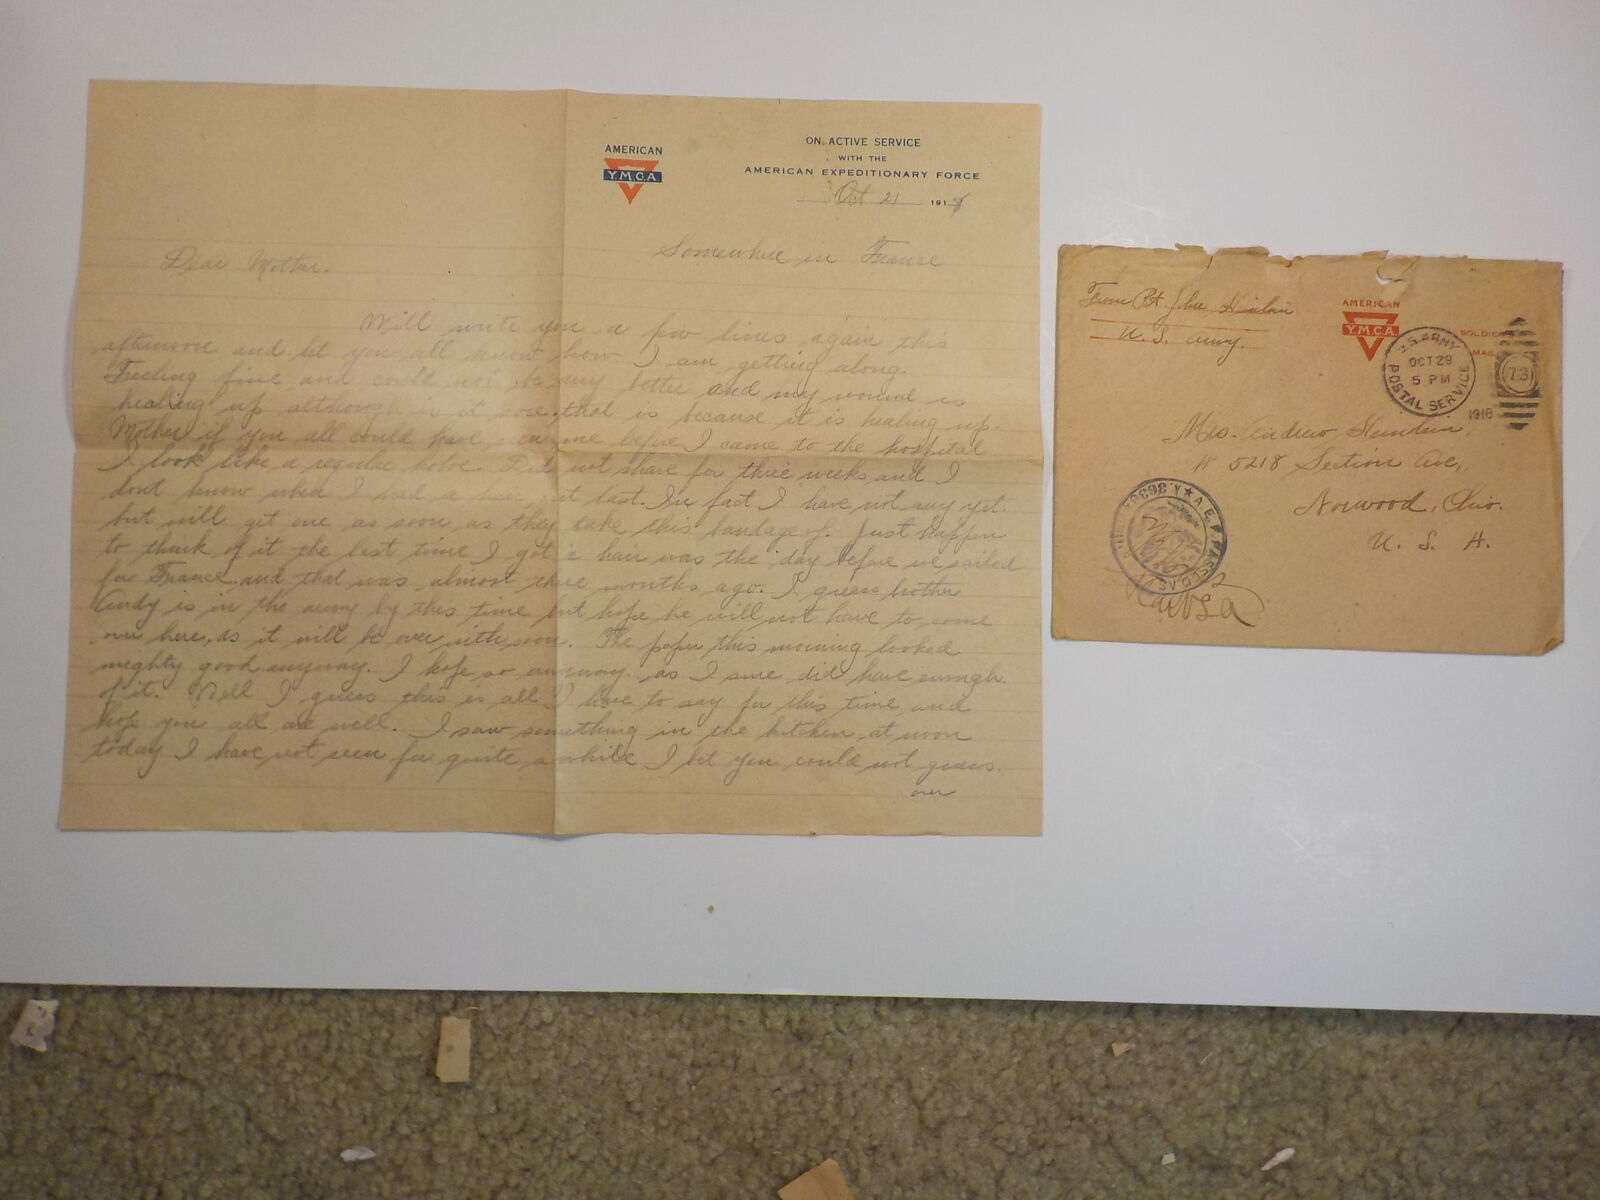 AMERICAN
Y.M.C.A
ON ACTIVE SERVICE
WITH THE
AMERICAN EXPEDITIONARY FORCE
Oct 21 1918
Somewhere in France
Dear Mother.
Will write you a few lines again this
afternoon and let you all know how I am getting along.
Feeling fine and could not be any better and my wound is
healing up although is it sore that is because it is healing up.
Mother if you all could have seen me before I came to the hospital
I look like a regular hobo. Did not shave for three weeks and I
dont know when I had a hair cut last. In fact I have not any yet
but will get one as soon as they take this bandage of. Just happen
to think of it the last time I got a hair was the day before we sailed
for France and that was almost three months ago. I guess brother
Andy is in the army by this time but hope he will not have to come
over here, as it will be over with soon. The paper this morning looked
mighty good anyway. I hope so anyway as I sure did have enough
of it. Well I guess this is all I have to say for this time and
hope you all are well. I saw something in the kitchen at noon
today I have not seen for quite a while I bet you could not guess.
over
From Pvt.
U. S. Army.
AMERICAN
Y.M.C.A.
SOLDIER
MAIL
U.S. ARMY
OCT 29
5 PM
POSTAL SERVICE
1918
73
Mrs. Andrew
# 5218 Section Ave,
Norwood, Ohio.
U. S. A.
A.E.F. PASSED AS
A.3693